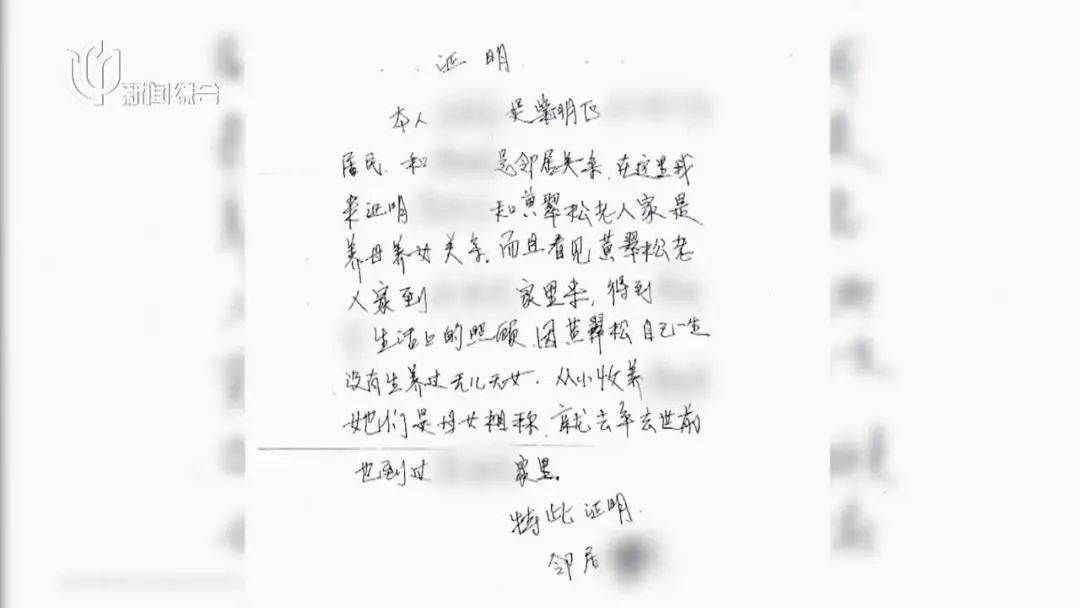 新闻综合
证明
本人 是 明
居民.和 是邻居关系.在这里我
来证明 和黄翠松老人家是
养母养女关系.而且看见黄翠松老
人家到 家里来,得到
生活上的照顾.因黄翠松自己一生
没有生养过无儿无女.从小收养
她们是母女相称.就去年去世前
也到过 家里.
特此证明.
邻居